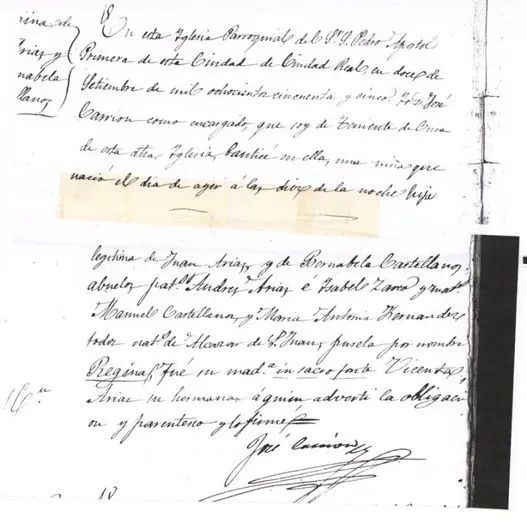 rina de
Arias y
nabela
llanos
En esta Iglesia Parroquial de Sr. S. Pedro Apostol
Primera de esta Ciudad de Ciudad Real, en doce de
Setiembre de mil ochocientos cincuenta y cinco. Yo D. José
Carrion como encargado, que soy de Teniente de Cura
de esta dha. Iglesia, bauticé en ella, una niña que
nacio el dia de ayer á las diez de la noche hija
legitima de Juan Arias, y de Bernabela Castellanos,
abuelos pat.s Andres Arias é Isabel Zarca y mat.s
Manuel Castellanos, y Maria Antonia Hernandez
todos nat.s de Alcazar de S. Juan, pusela por nombre
Regina, fué su mad.a in sacro fonte Vicenta
Arias su hermana á quien adverti la obligaci
on y parentesco y lo firmé
José Carrion